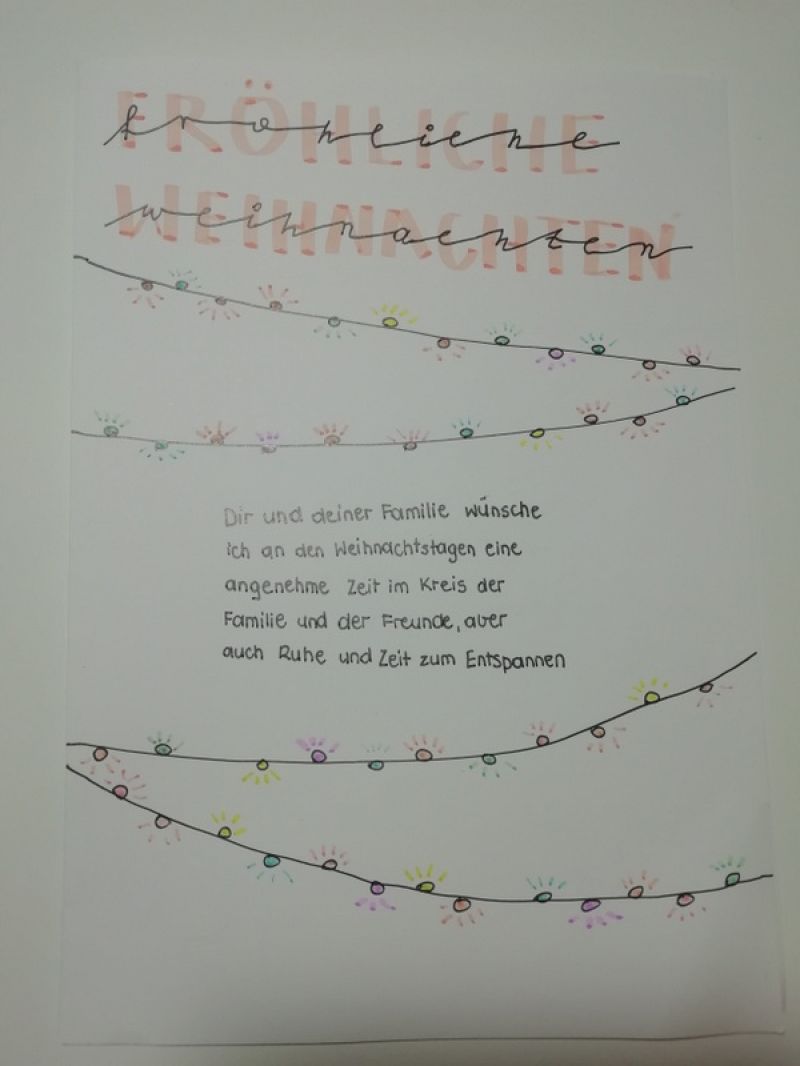 FRÖHLICHE
fröhliche
WEIHNACHTEN
weihnachten
Dir und deiner Familie wünsche
ich an den Weihnachtstagen eine
angenehme Zeit im Kreis der
Familie und der Freunde, aber
auch Ruhe und Zeit zum Entspannen